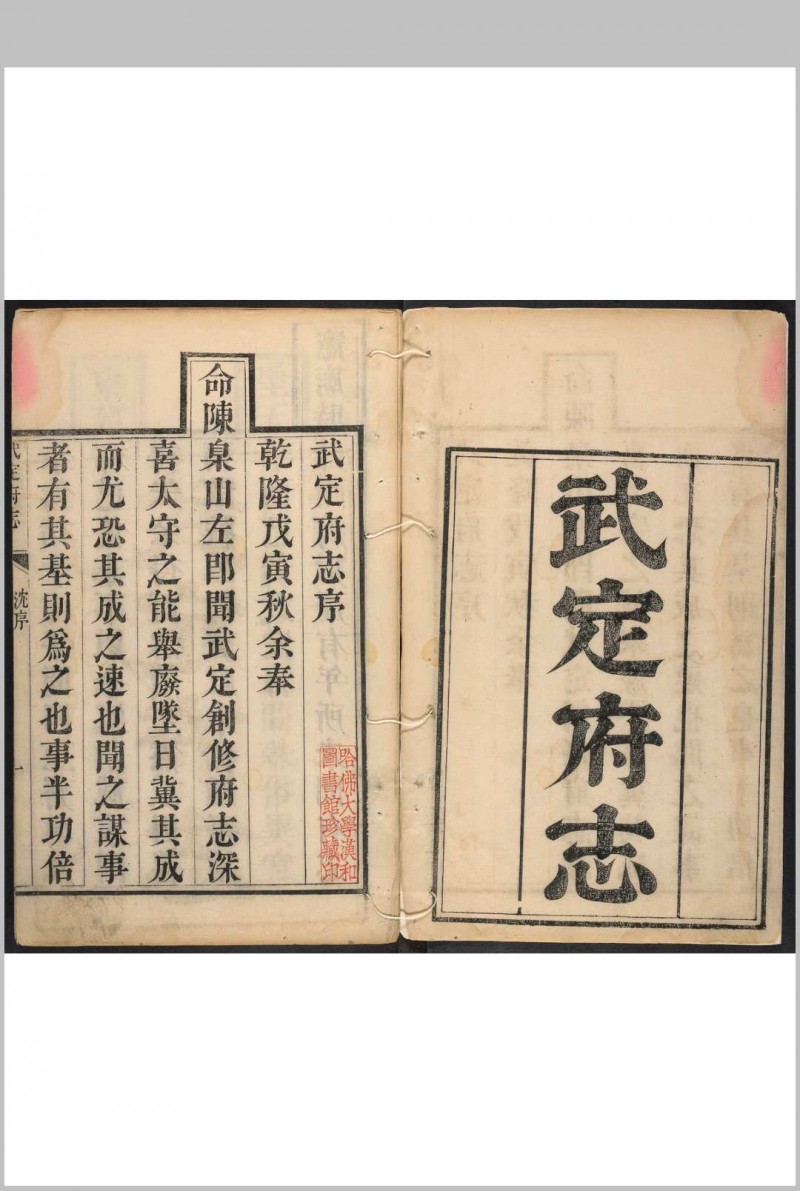 武定府志
武定府志序
乾隆戊寅秋余奉
命陳臬山左即聞武定創修府志深
喜太守之能舉廢墜日冀其成
而尤恐其成之速也聞之謀事
者有其基則爲之也事半功倍
武定府志
沈序
一
哈佛大學漢和
圖書館珍藏印